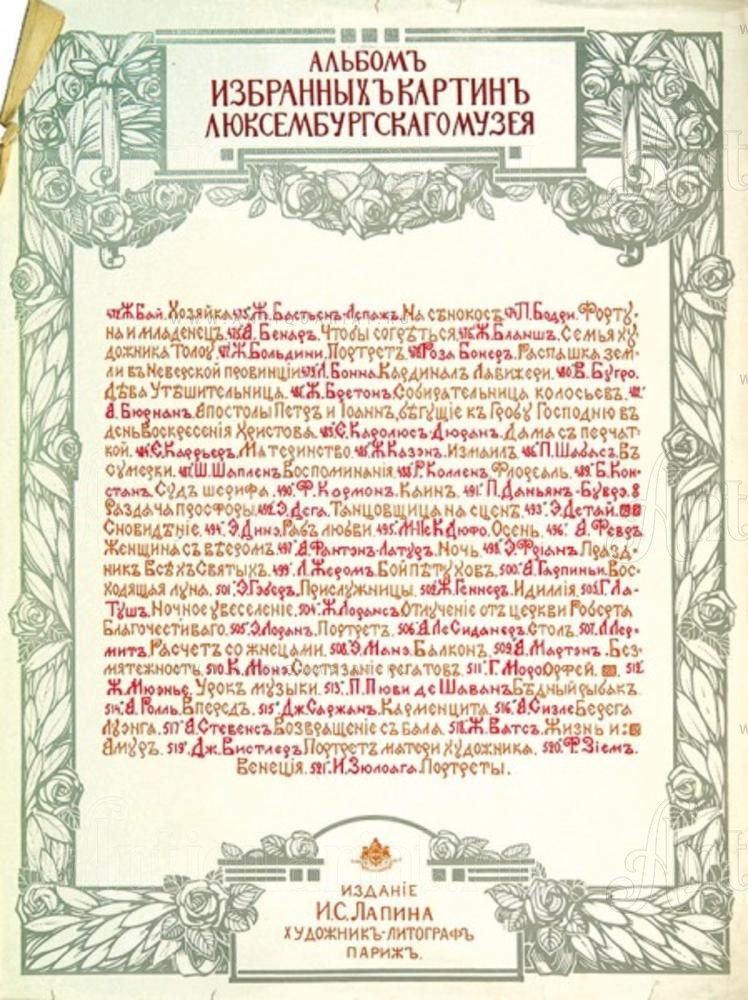 АЛЬБОМЪ
ИЗБРАННЫХЪ КАРТИНЪ
ЛЮКСЕМБУРГСКАГО МУЗЕЯ
Ж. Бай. Хозяйка. Ж. Бастьен-Лепаж. На сѣнокосѣ. П. Бодри. Форту-
на и младенецъ. А. Бенаръ. Чтобы согрѣться. Ж. Бланшъ. Семья ху-
дожника Толоу. Ж. Больдини. Портретъ. Роза Бонеръ. Распашка зем-
ли въ Неверской провинціи. Л. Бонна. Кардиналъ Лавижери. 480. В. Бугро.
Дѣва Утѣшительница. Ж. Бретонъ. Собирательница колосьевъ.
А. Бюрнанъ. Апостолы Петръ и Іоаннъ, бѣгущіе къ Гробу Господню въ
день Воскресенія Христова. Є. Каролюсъ-Дюранъ. Дама съ перчат-
кой. Є. Каррьеръ. Материнство. Ж. Казэнъ. Измаилъ. П. Шабасъ. Въ
сумерки. Ш. Шапленъ. Воспоминанія. Р. Колленъ. Флореаль. 489. Б. Кон-
станъ. Судъ шерифа. 490. Ф. Кормонъ. Каинъ. 491. П. Даньян-Бувэ.
Раздача просфоры. 492. Э. Дега. Танцовщица на сценѣ. 493. Э. Детай.
Сновидѣніе. 494. Э. Динэ. Рабъ любви. 495. М-lle К. Дюфо. Осень. 496. А. Февръ.
Женщина съ вѣеромъ. 497. А. Фантэнъ-Латуръ. Ночь. 498. Э. Фріанъ. Празд-
никъ Всѣхъ Святыхъ. 499. Л. Жеромъ. Бой пѣтуховъ. 500. А. Гарпиньи. Вос-
ходящая луна. 501. Э. Гэверъ. Прислужницы. 502. Ж. Геннеръ. Идиллія. 503. Г. Ла-
Тушъ. Ночное увеселеніе. 504. Ж. Лорансъ. Отлученіе отъ церкви Роберта
Благочестиваго. 505. Э. Лоранъ. Портретъ. 506. А. Ле Сиданеръ. Столъ. 507. Л. Лер-
митъ. Расчетъ со жнецами. 508. Э. Манэ. Балконъ. 509. А. Мартэнъ. Без-
мятежность. 510. К. Монэ. Состязаніе регатовъ. 511. Г. Моро. Орфей. 512.
Ж. Мюэнье. Урокъ музыки. 513. П. Пюви де Шаванъ. Бѣдный рыбакъ.
514. А. Ролль. Впередъ. 515. Дж. Саржанъ. Карменцита. 516. А. Сизле. Берега
Луэнга. 517. А. Стевенсъ. Возвращеніе съ бала. 518. Ж. Ватсъ. Жизнь и
Амуръ. 519. Дж. Вистлеръ. Портретъ матери художника. 520. Ф. Зіемъ.
Венеція. 521. И. Зюлоага. Портреты.
ИЗДАНІЕ
И. С. ЛАПИНА
ХУДОЖНИКЪ-ЛИТОГРАФЪ
ПАРИЖЪ.